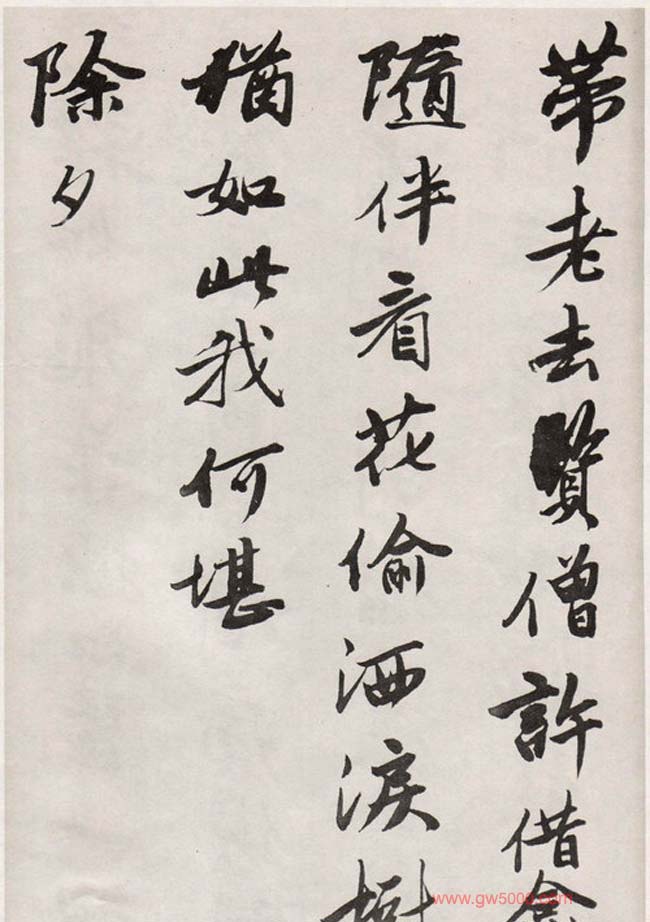 帶老去賢僧許借
隨伴看花偷洒淚樹
猶如此我何堪
除夕
www.gw5000.com